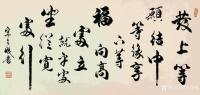 發上等
願結中
等緣享
下等
福向高
處立就平處
坐從寬
處行